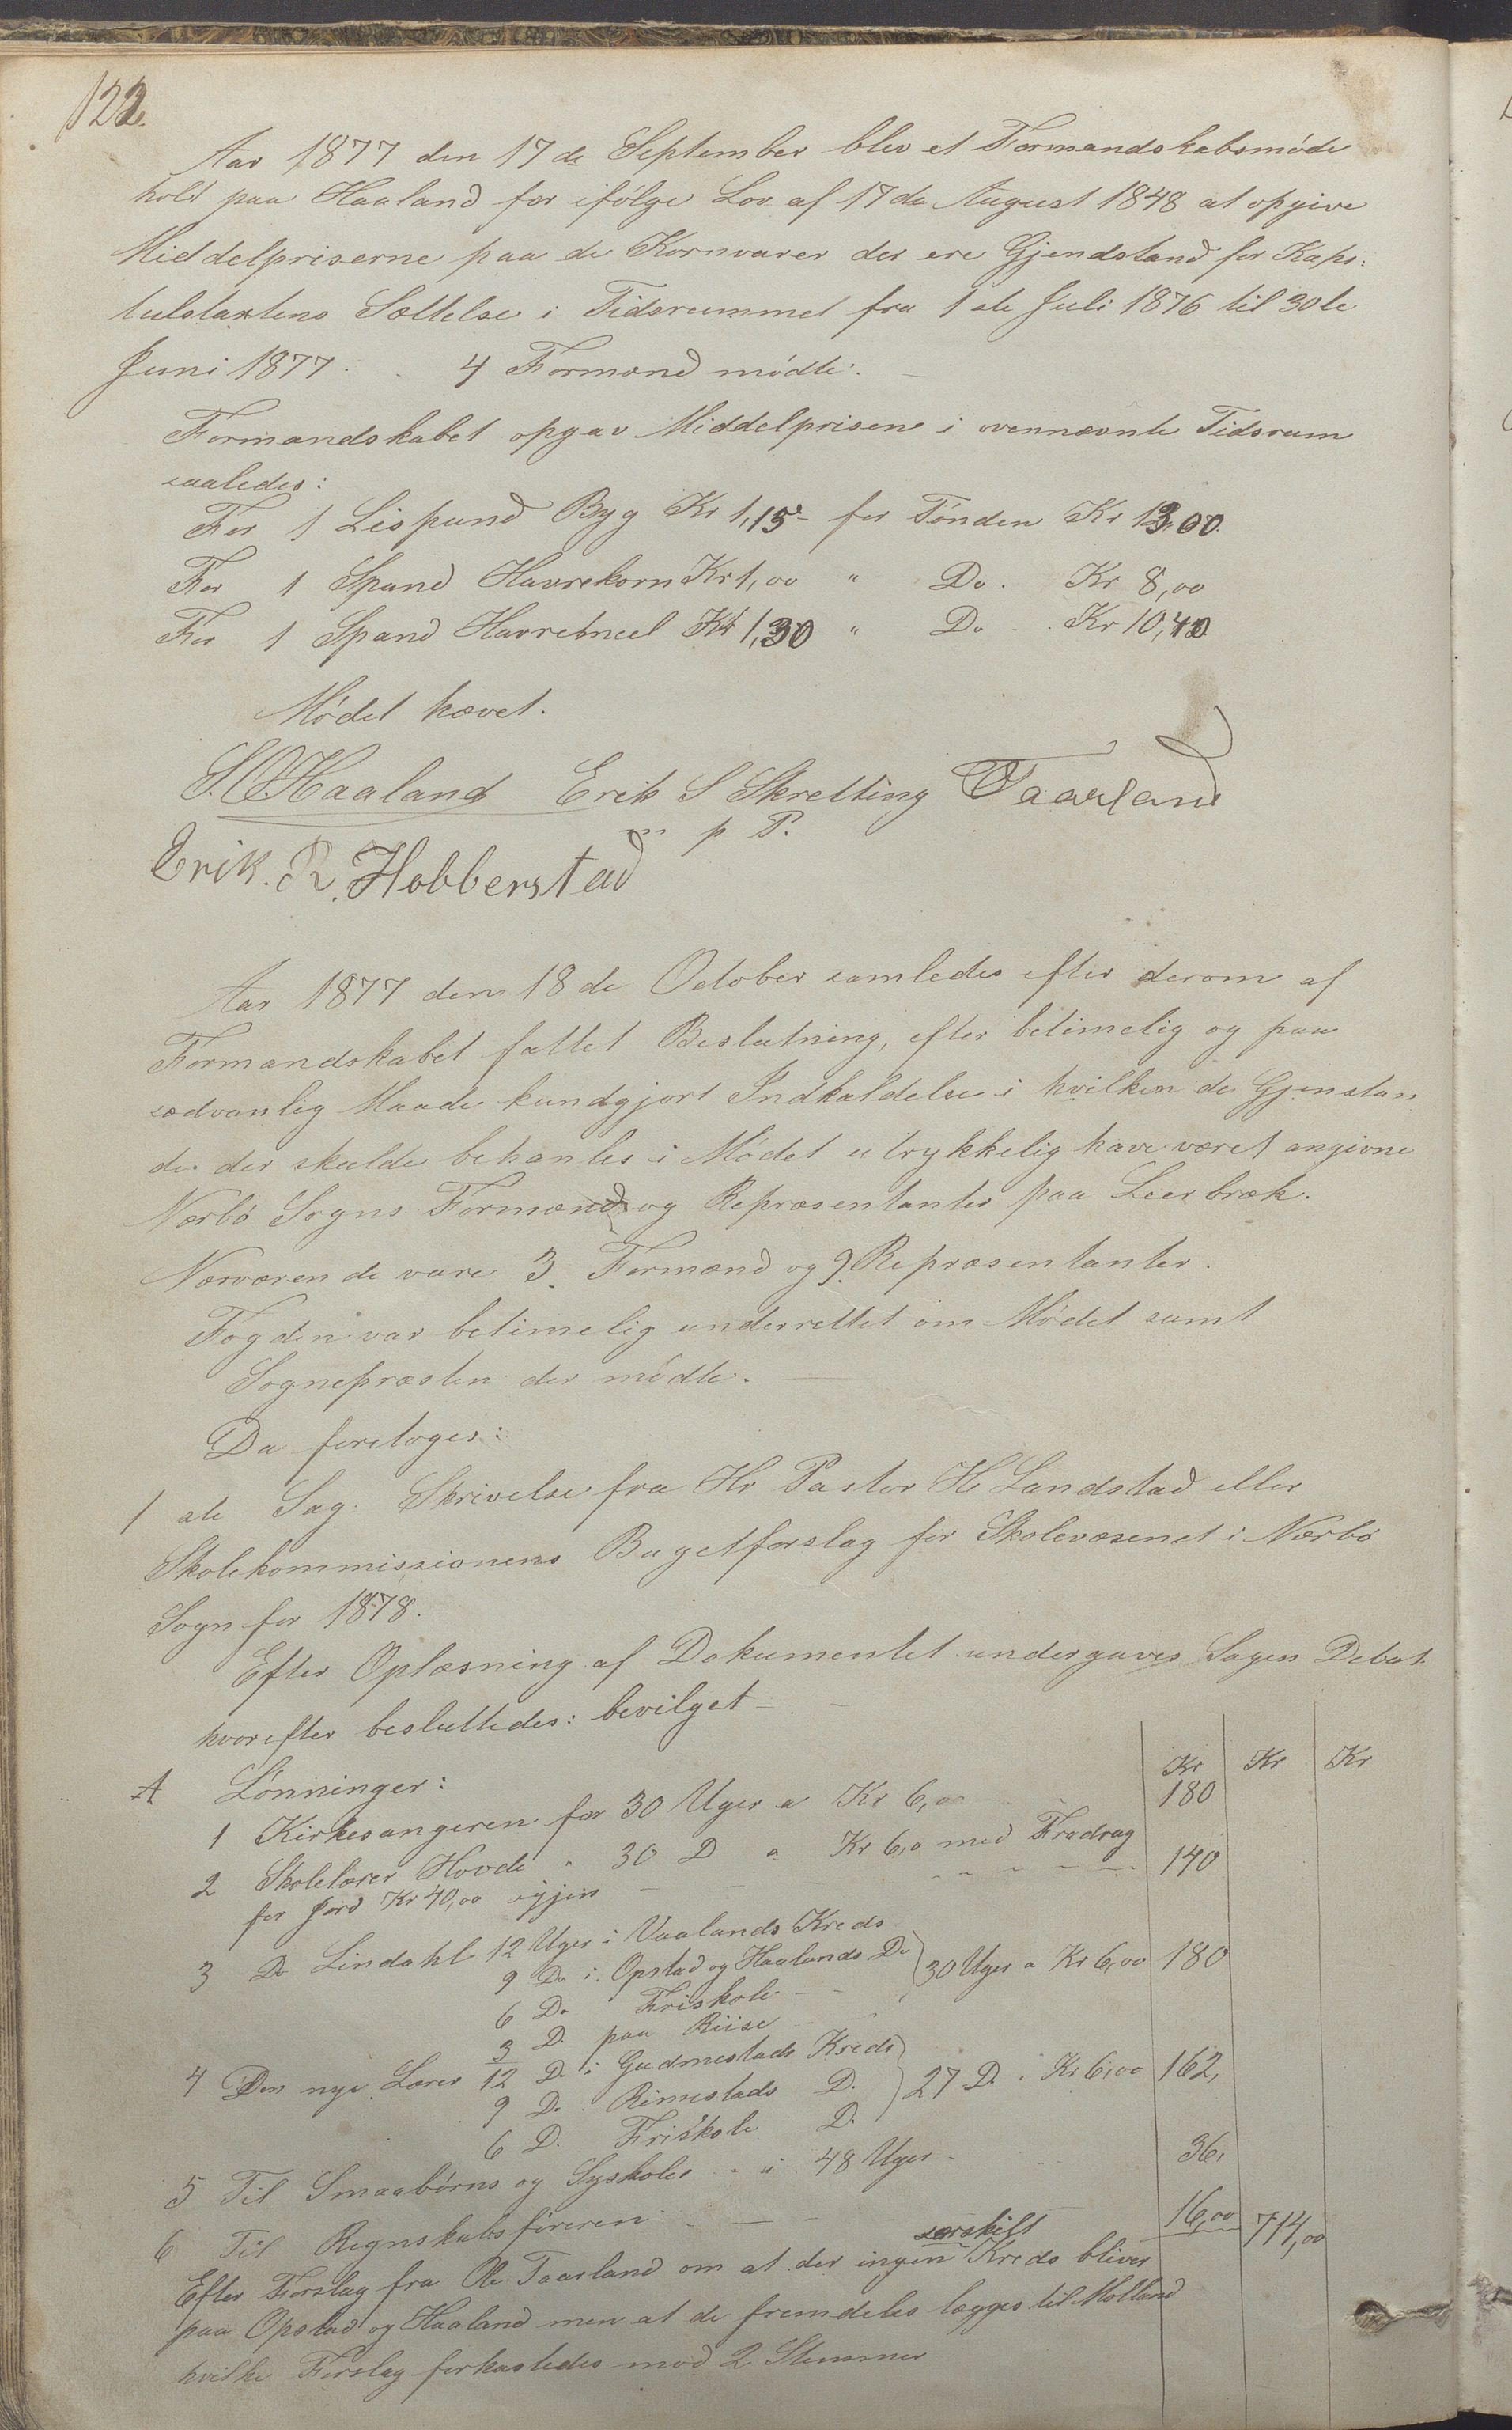 122.
Aar 1877 den 17de September blev et Formandskabsmøde
holt paa Haaland for ifølge Lov af 17de August 1848 at opgive
Middelpriserne paa de Kornvarer der ere Gjendstand for Kapi-
tulstaxtens Sættelse i Tidsrummet fra 1ste Juli 1876 til 30te
Juni 1877. 4 Formænd mødte.
Formandskabet opgav Middelprisene i ovennævnte Tidsrum
saaledes:
For 1 Lispund Byg Kr 1,15 - for Tønden Kr 13,00.
For 1 Spand Havrekorn Kr 1,00 " Do. Kr 8,00
For 1 Spand Havremeel Kr 1,30 " Do. Kr 10,40
Mødet hævet.
S.O.Haaland Erik S Skretting OTaarland
p P.
Erik. R. Hobberstad
Aar 1877 den 18de October samledes efter derom af
Formandskabet fattet Beslutning, efter betimelig og paa
sædvanlig Maade kundgjort Indkaldelse i hvilken de Gjenstan
de der skulde behanles i Mødet utrykkelig have været angivne
Nærbø Sogns Formænd og Repræsentanter paa Leerbræk.
Nærværende vare 3 Formænd og 9 Repræsentanter.
Fogden var betimelig underrettet om Mødet samt
Sognepræsten der mødte.
Da foretoges:
1ste Sag. Skrivelse fra Hr Pastor H Landstad eller
Skolekommissionens Bugetforslag for Skolevæsenet i Nærbø
Sogn for 1878.
Efter Oplæsning af Dokumentet undergaves Sagen Debat
hvorefter besluttedes: bevilget
Kr Kr Kr
A Lønninger:
1 Kirkesangeren for 30 Uger a Kr 6,00 180
2 Skolelærer Hovde " 30 D a Kr 6,0 med Fradrag
for Jord Kr 40,00 igjen 140
3 Do Lindahl 12 Uger i Vaalands Kreds
9 Do i Opstad og Haalands Do
6 Do Friskole
3 D. paa Riise
30 Uger a Kr 6,00 180
4 Den nye Lærer 12 D. i Gudmestads Kreds
9 D. Rimestads D.
6 D. Friskole D.
27 D. Kr 6,00 162,
5 Til Smaabørns og Syskoler i 48 Uger 36,
6 Til Regnskabsføreren 16,00 714,00
Efter Forslag fra Ole Taarland om at der ingen særskilt Kreds bliver
paa Opstad og Haaland men at de fremdeles lægges til Motland
hvilke Forslag forkastedes mod 2 Stemmer